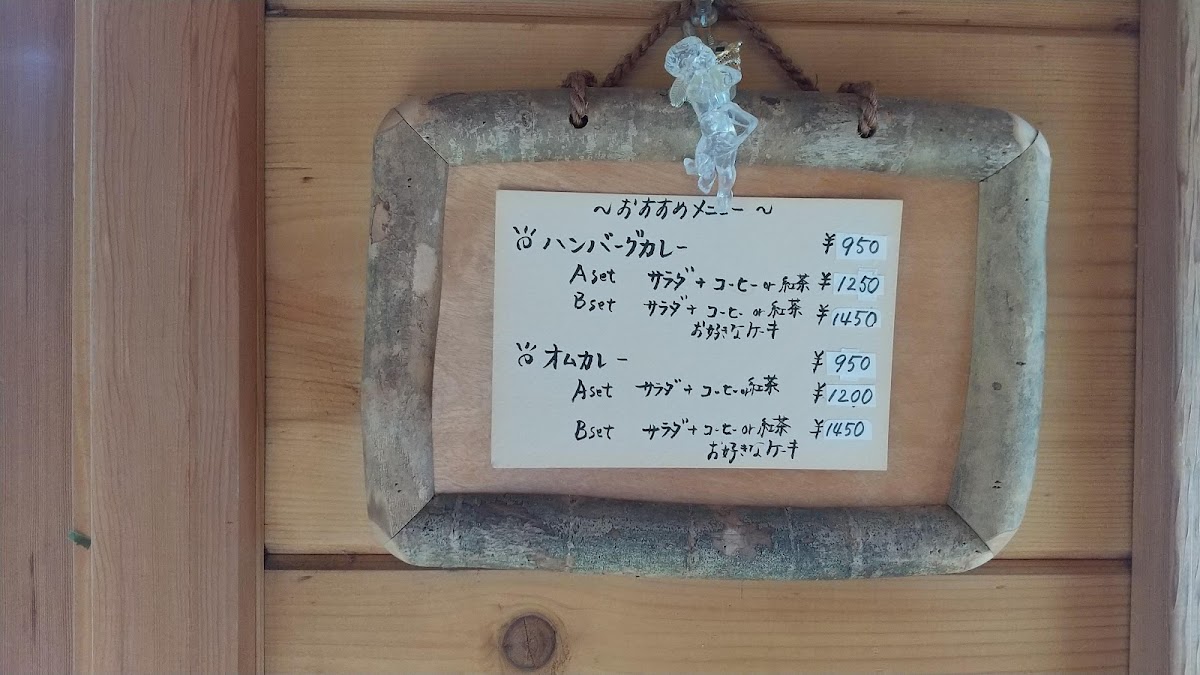 ～おすすめメニュー～
ハンバーグカレー ￥950
Aset サラダ+コーヒーor紅茶 ￥1250
Bset サラダ+コーヒーor紅茶 ￥1450
お好きなケーキ
オムカレー ￥950
Aset サラダ+コーヒーor紅茶 ￥1200
Bset サラダ+コーヒーor紅茶 ￥1450
お好きなケーキ